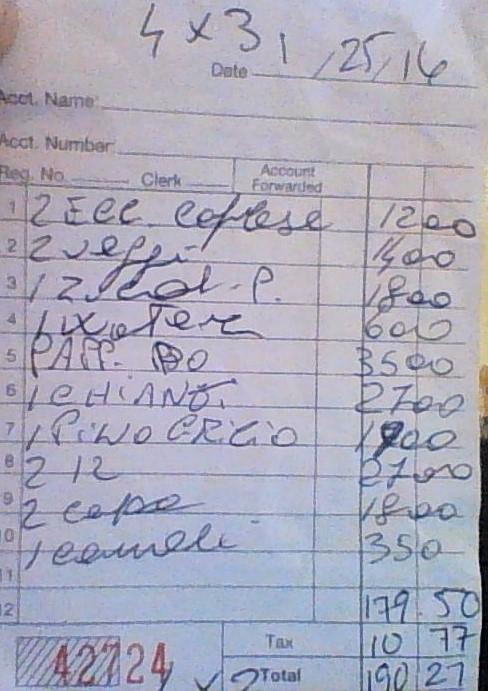 4 x 3
Date 1/25/16
Acct. Name:
Acct. Number:
Reg. No. Clerk Account Forwarded
1 2 1200
2 2 veggi 1400
3 1 P. 1800
4 1 600
5 PAPP. 3500
6 1 CHIANT. 2700
7 1 PiNO GRiGiO 1900
8 2 12 2700
9 2 capo 1800
10 1 cannoli 350
11
12 179.50
Tax 10 77
42724 Total 190 27